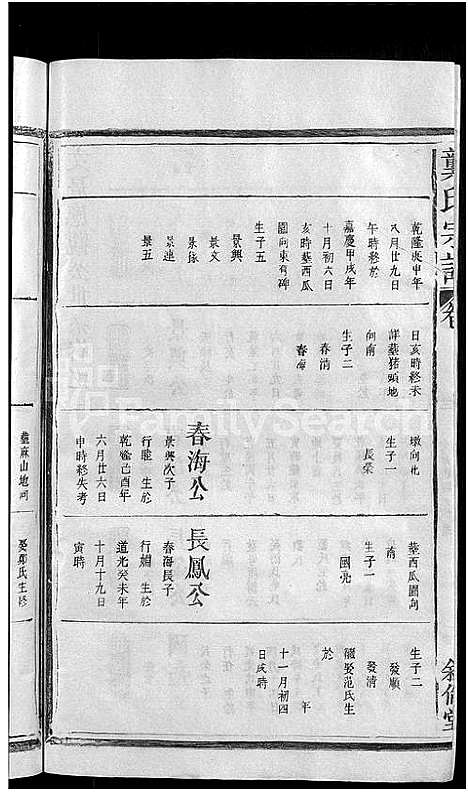 龔氏宗譜
卷
敘倫堂
乾隆庚申年
八月廿九日
午時終於
嘉慶甲戌年
十月初六日
亥時墓西瓜
園向東有碑
生子五
景興
景文
景依
景進
景五
日亥時終未
詳墓猪頭地
向南
生子二
春清
春海
墩向北
生子一
長榮
春海公
景興次子
行 生於
乾隆己酉年
六月廿六日
申時終失考
墓西瓜園向
南
生子一
國堯
長鳳公
春海長子
行 生於
道光癸未年
十月十九日
寅時
生子二
發順
發清
繼娶范氏生
於
年
十一月初四
日戌時
蘆麻山地向
娶鄭氏生於
FamilySearch